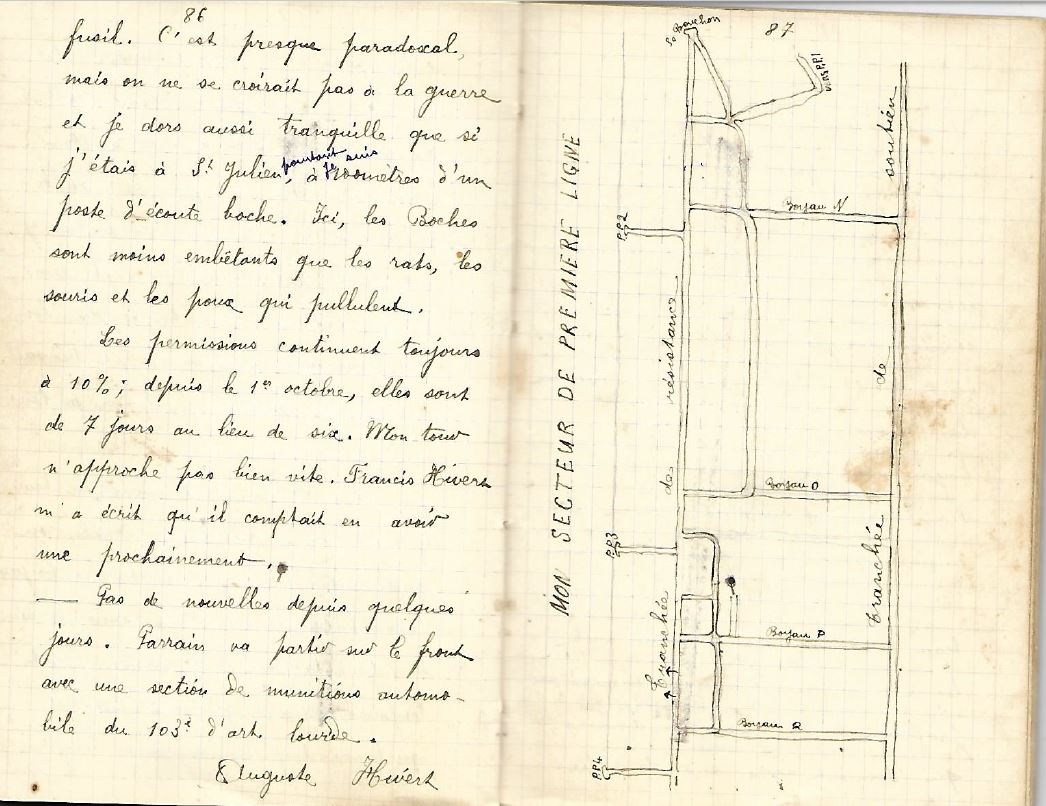 86
fusil. C'est presque paradoxal,
mais on ne se croirait pas à la guerre
et je dors aussi tranquille que si
pourtant je suis
j'étais à St Julien, à mètres d'un
poste d'écoute boche. Ici, les Boches
sont moins embêtants que les rats, les
souris et les poux qui pullulent.
Les permissions continuent toujours
à 10%; depuis le 1er octobre, elles sont
de 7 jours au lieu de six. Mon tour
n'approche pas bien vite. Francis Hivert
m'a écrit qu'il comptait en avoir
une prochainement.
— Pas de nouvelles depuis quelques
jours. Parrain va partir sur le front
avec une section de munitions automo-
bile du 103e d'art. lourde.
Auguste Hivert
87
MON SECTEUR DE PREMIERE LIGNE
Le Bouchon
P.P.1
P.P.2
P.P.3
P.P.4
Tranchée de résistance
Boyau N
Boyau O
Boyau P
Boyau Q
Tranchée de soutien